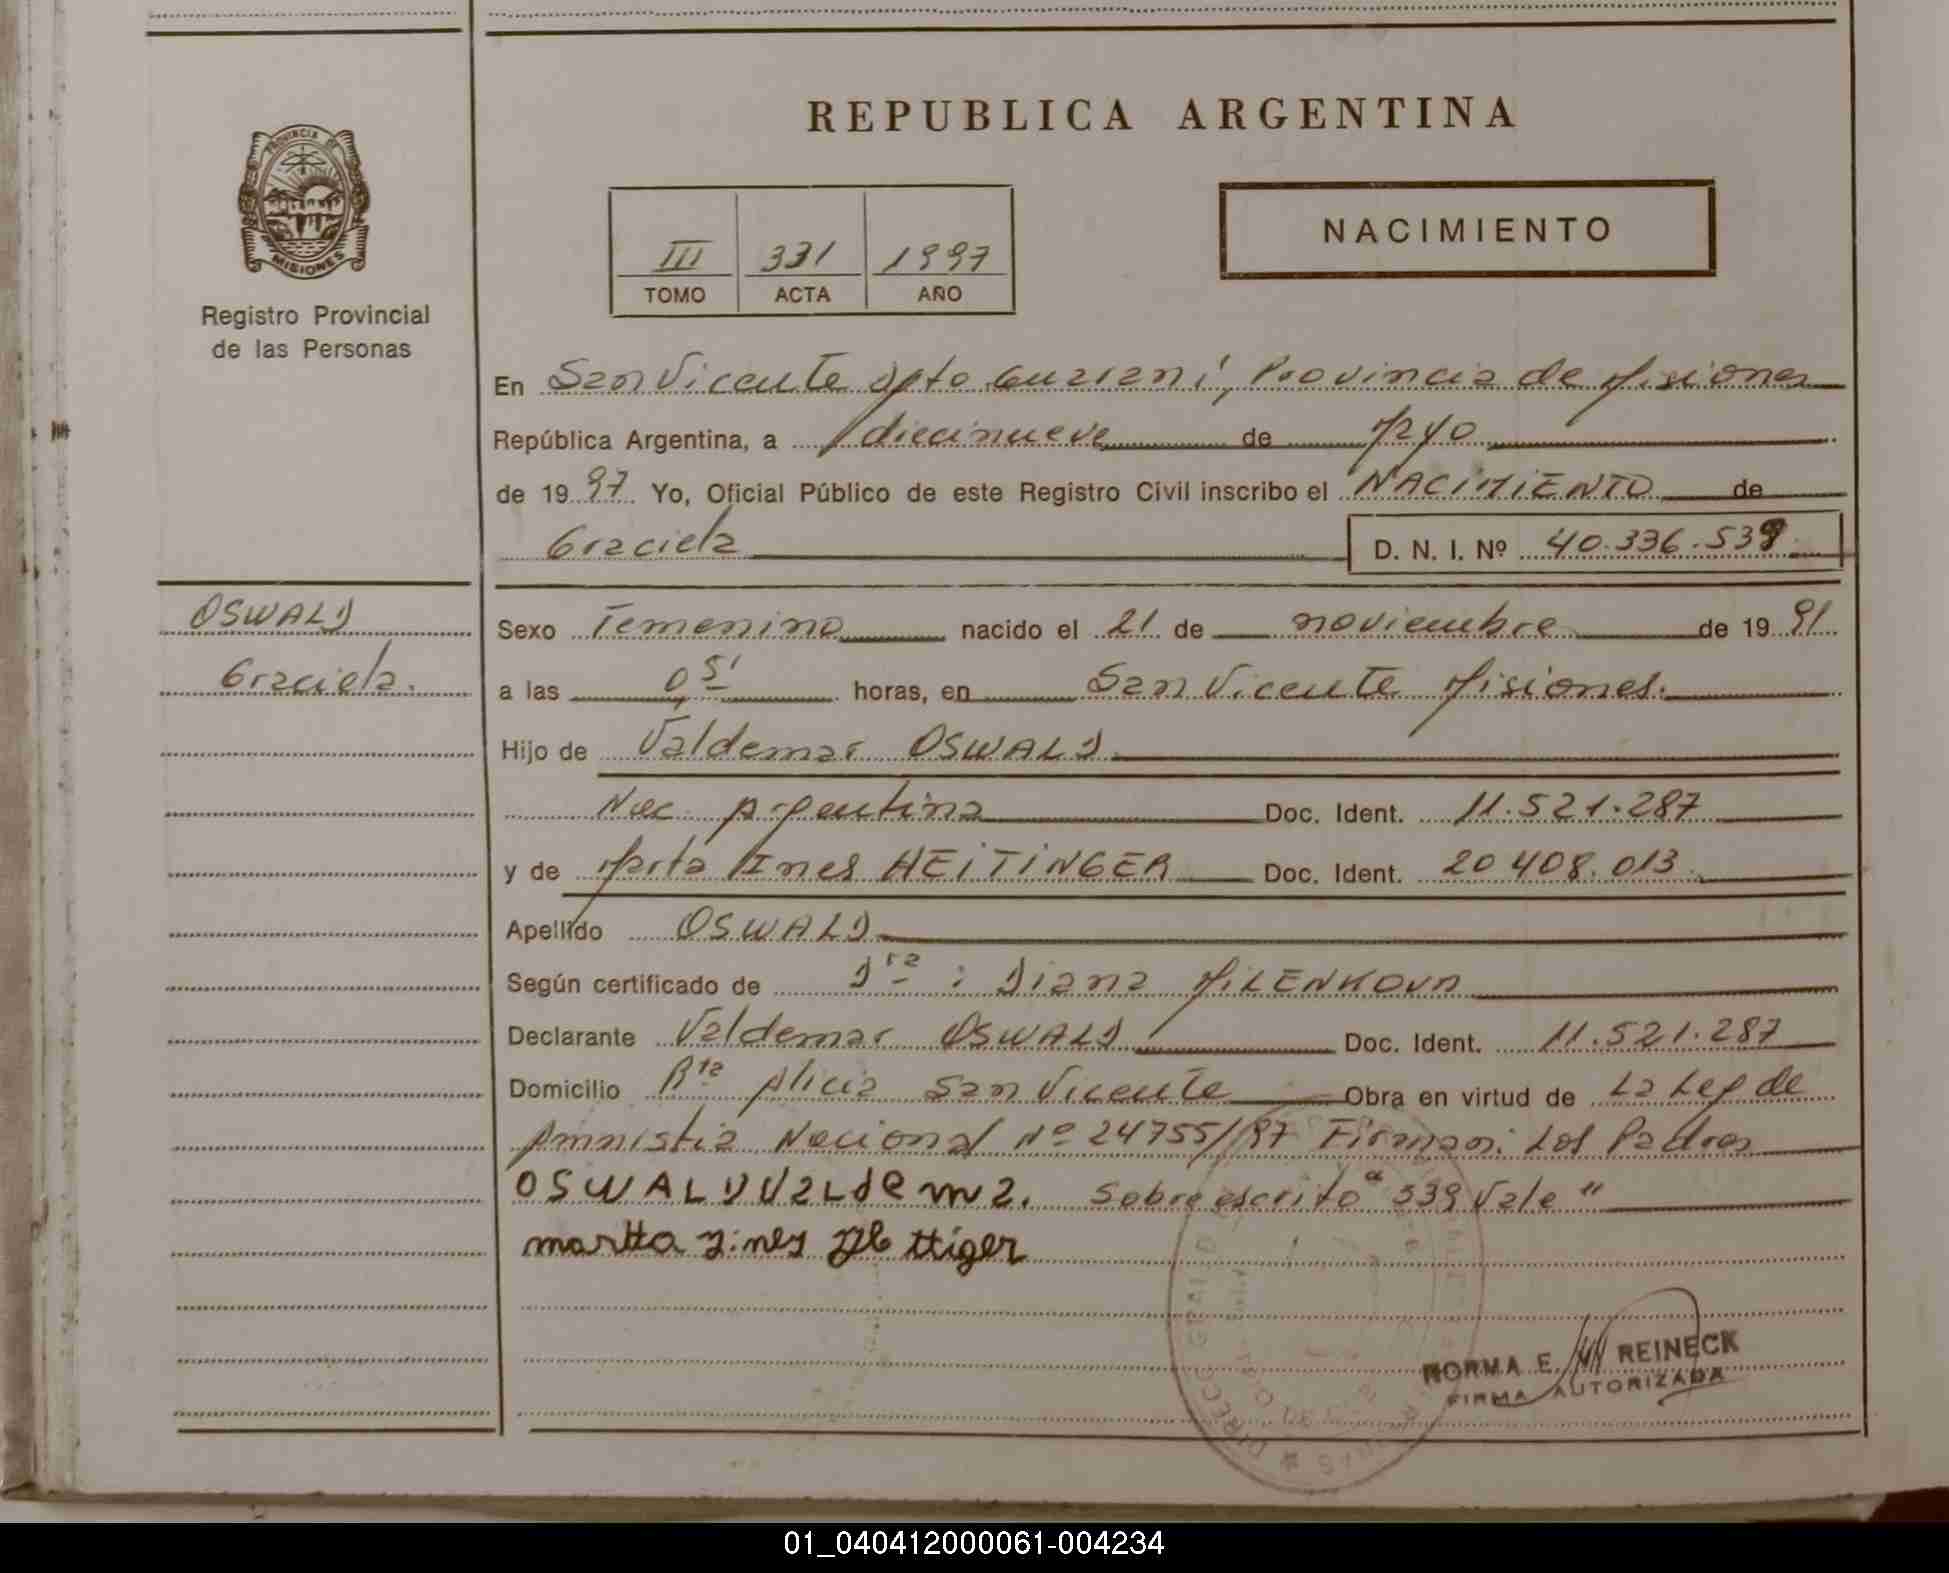 REPUBLICA ARGENTINA
PROVINCIA DE
MISIONES
Registro Provincial
de las Personas
III 331 1997
TOMO ACTA AÑO
NACIMIENTO
En San Vicente Dpto Guarani, Provincia de Misiones
República Argentina, a diecinueve de Mayo
de 19 97 Yo, Oficial Público de este Registro Civil inscribo el NACIMIENTO de
Graciela D. N. I. Nº 40.336.539
OSWALD
Graciela.
Sexo Femenino nacido el 21 de noviembre de 19 91
a las 05 horas, en San Vicente Misiones.
Hijo de Valdemar OSWALD
Nac. Argentina Doc. Ident. 11.521.287
y de Marta Ines HEITINGER Doc. Ident. 20 408.013
Apellido OSWALD
Según certificado de Dra : Diana MILENKOVA
Declarante Valdemar OSWALD Doc. Ident. 11.521.287
Domicilio Rta Alicia San Vicente Obra en virtud de La Ley de
Amnistia Nacional Nº 24755/97 Firman: Los Padres
OSWALD Valdema. Sobre escrito "539 Vale"
martta
NORMA E. REINECK
FIRMA AUTORIZADA
01_040412000061-004234